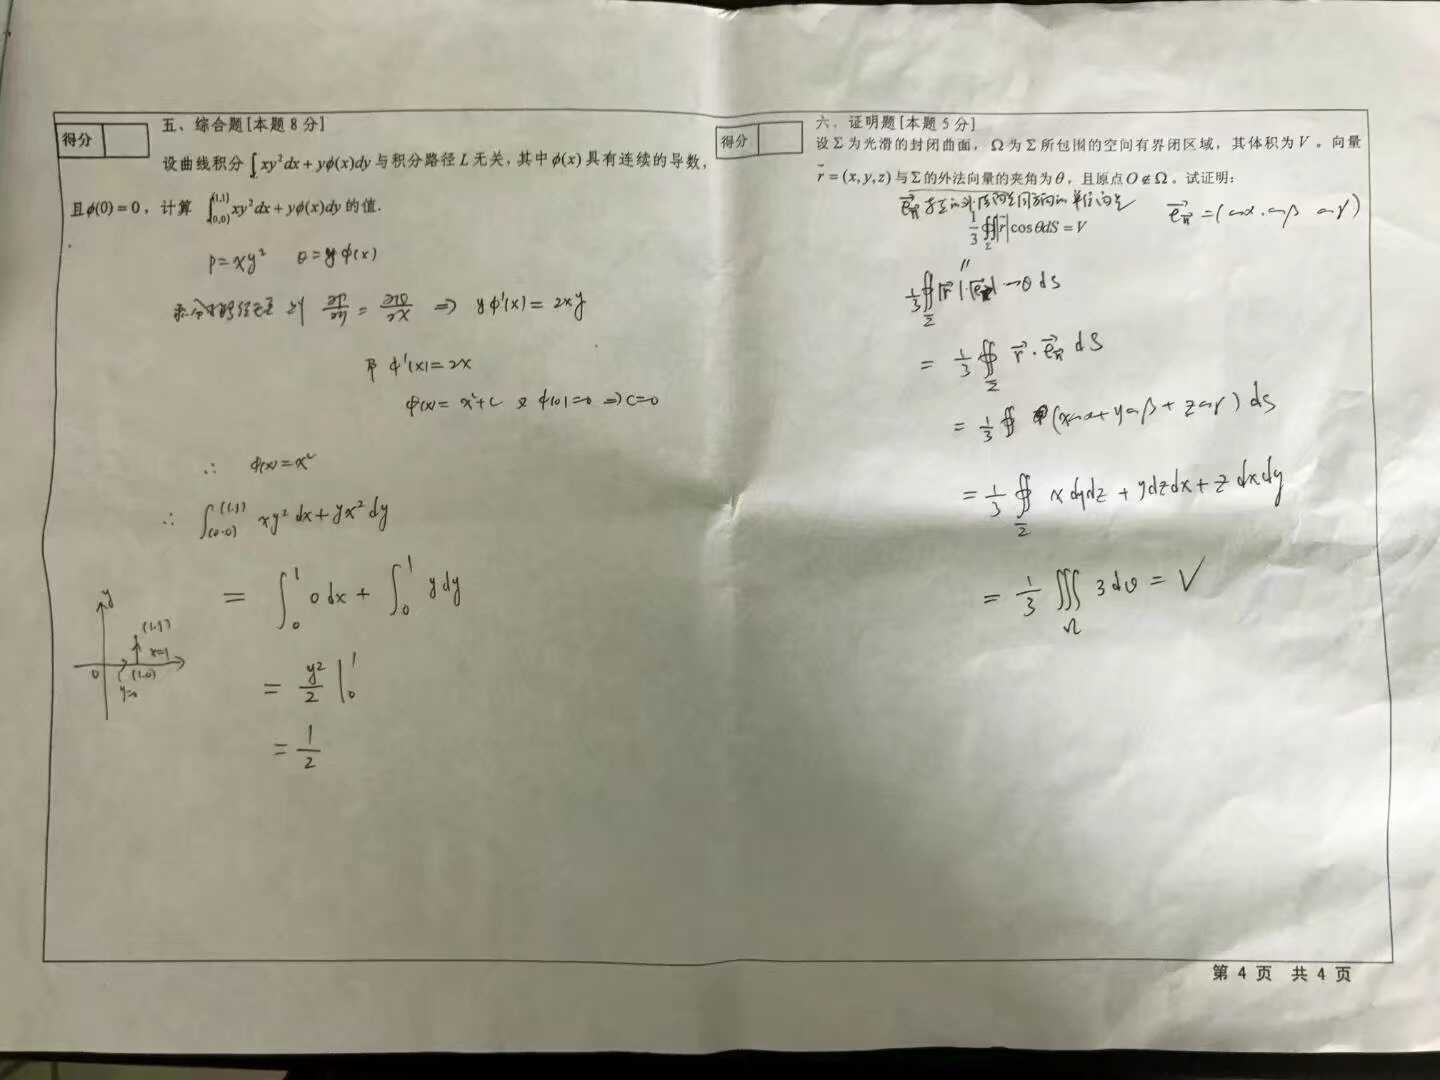 得分
五、综合题[本题8分]
设曲线积分∫_L xy²dx+yφ(x)dy与积分路径L无关,其中φ(x)具有连续的导数,
且φ(0)=0,计算 ∫_(0,0)^(1,1) xy²dx+yφ(x)dy的值.
P=xy² Q=yφ(x)
积分与路径无关 则 ∂P/∂y = ∂Q/∂x ⇒ yφ'(x)=2xy
即 φ'(x)=2x
φ(x)=x²+C 又 φ(0)=0 ⇒ C=0
∴ φ(x)=x²
∴ ∫_(0,0)^(1,1) xy²dx+yx²dy
= ∫_0^1 0dx + ∫_0^1 ydy
= y²/2 |_0^1
= 1/2
y
(1,1)
x=1
0
(1,0)
y=0
得分
六、证明题[本题5分]
设Σ为光滑的封闭曲面,Ω为Σ所包围的空间有界闭区域,其体积为V。向量
r⃗=(x,y,z)与Σ的外法向量的夹角为θ,且原点O∉Ω。试证明:
e⃗n⃗ 为Σ的外法向量同方向的单位向量 e⃗n⃗=(cosα,cosβ cosγ)
1/3 ∯_Σ |r⃗|cosθdS=V
1/3 ∯_Σ |r⃗|·|e⃗n⃗| cosθ dS
= 1/3 ∯_Σ r⃗·e⃗n⃗ dS
= 1/3 ∯ (xcosα+ycosβ+zcosγ) dS
= 1/3 ∯_Σ xdydz+ydzdx+zdxdy
= 1/3 ∭_Ω 3dv = V
第 4 页 共 4 页